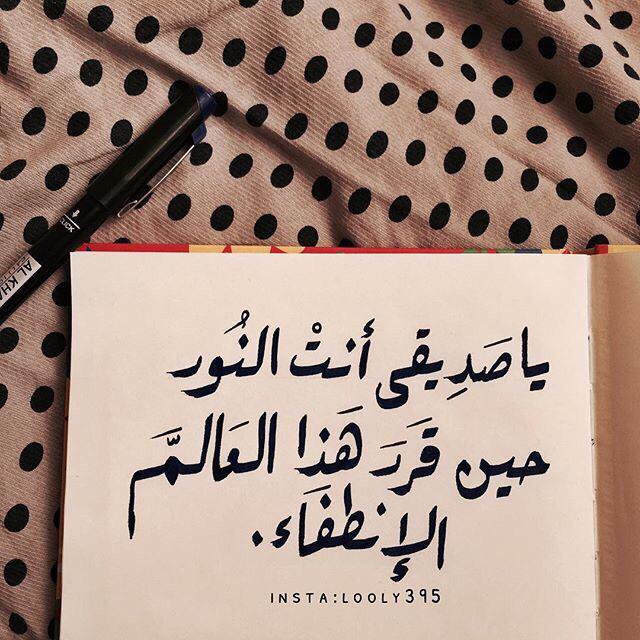 ياصَدِيقى أنتْ النُور
حين قَرَرَ هَذا العَالمَّ
الإنطفَاء.
INSTA:LOOLY395
CLICK
AL KHA